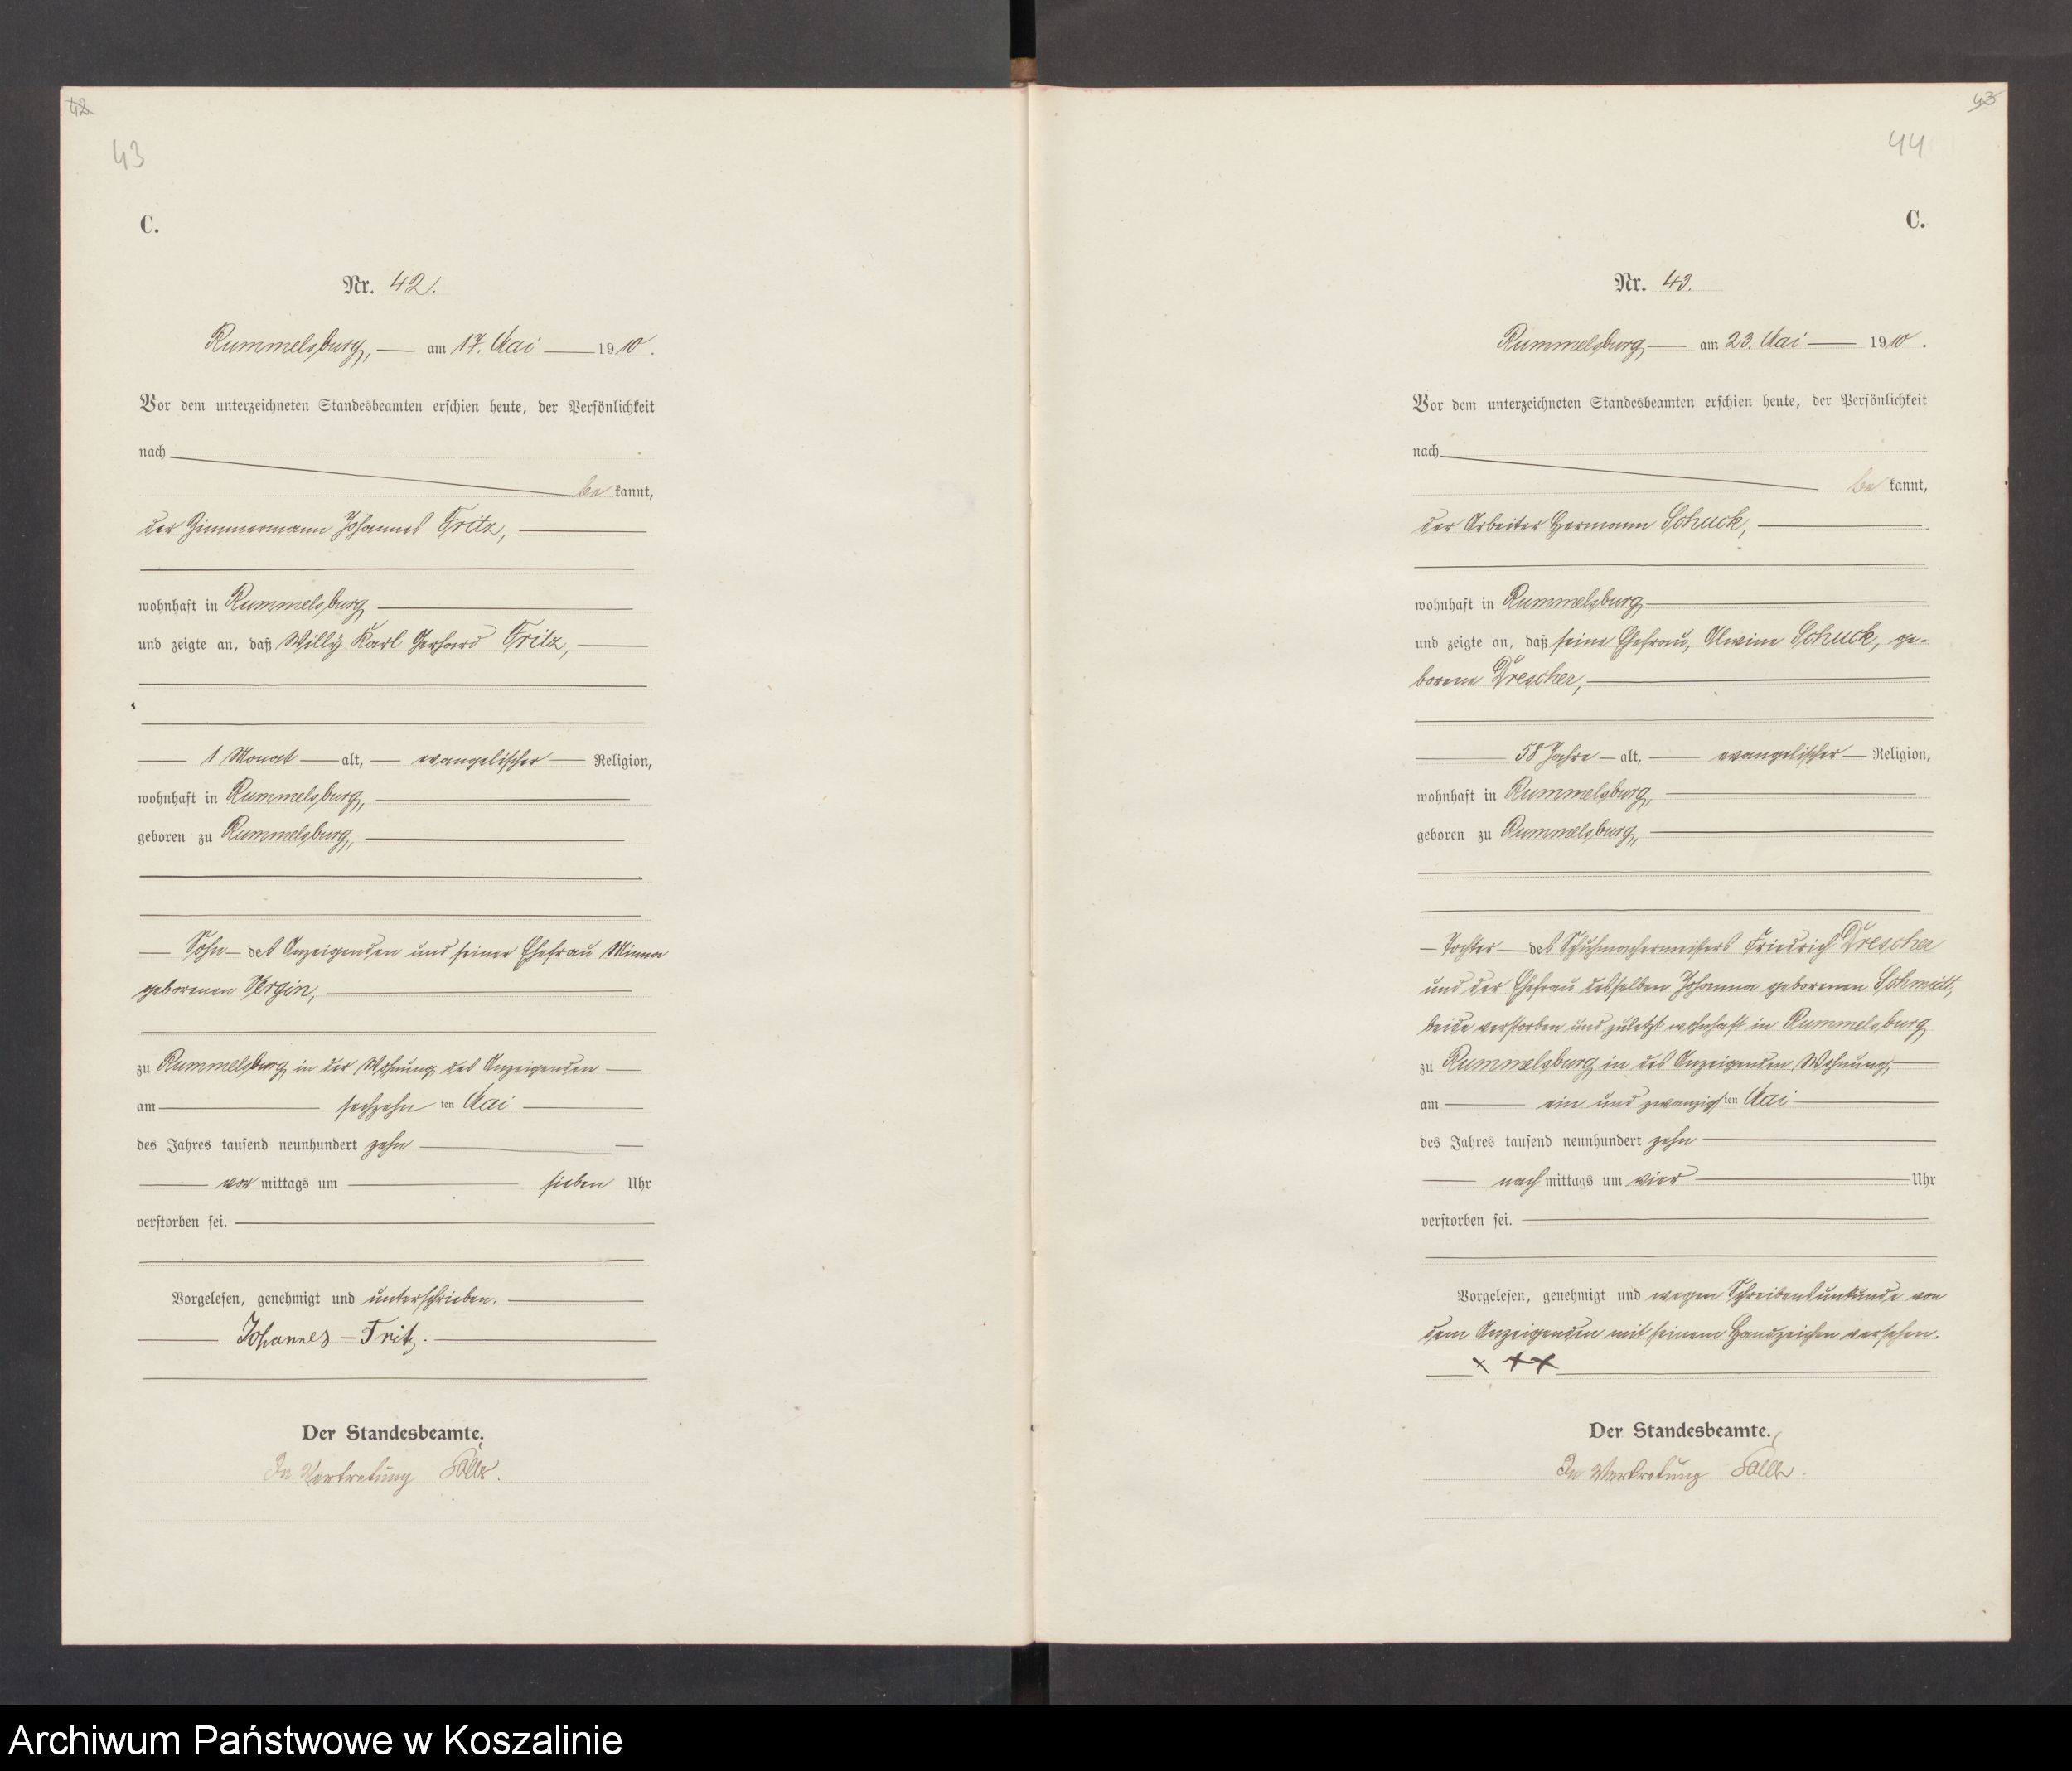 42
43
C.
Nr. 42.
Rummelsburg, am 17. Mai 1910.
Vor dem unterzeichneten Standesbeamten erschien heute, der Persönlichkeit
nach
be kannt,
der Zimmermann Johannes Fritz,
wohnhaft in Rummelsburg
und zeigte an, daß Willy Karl Gerhard Fritz,
1 Monat alt, evangelischer Religion,
wohnhaft in Rummelsburg,
geboren zu Rummelsburg,
Sohn des Anzeigenden und seiner Ehefrau Minna
geborenen Vergin,
zu Rummelsburg in der Wohnung des Anzeigenden
am sechzehn ten Mai
des Jahres tausend neunhundert zehn
vor mittags um sieben Uhr
verstorben sei.
Vorgelesen, genehmigt und unterschrieben.
Johannes Fritz.
Der Standesbeamte.
In Vertretung
43
44
C.
Nr. 43.
Rummelsburg am 23. Mai 1910.
Vor dem unterzeichneten Standesbeamten erschien heute, der Persönlichkeit
nach
be kannt,
der Arbeiter Hermann Schuck,
wohnhaft in Rummelsburg
und zeigte an, daß seine Ehefrau, Alwine Schuck, ge-
borene Drescher,
58 Jahre alt, evangelischer Religion,
wohnhaft in Rummelsburg,
geboren zu Rummelsburg,
Tochter des Schuhmachermeisters Friedrich Drescher
und der Ehefrau desselben Johanna geborenen Schmidt,
beide verstorben und zuletzt wohnhaft in Rummelsburg
zu Rummelsburg in des Anzeigenden Wohnung
am ein und zwanzigsten Mai
des Jahres tausend neunhundert zehn
nach mittags um vier Uhr
verstorben sei.
Vorgelesen, genehmigt und wegen Schreibensunkunde von
dem Anzeigenden mit seinem Handzeichen versehen.
x x x
Der Standesbeamte.
In Vertretung
Archiwum Państwowe w Koszalinie